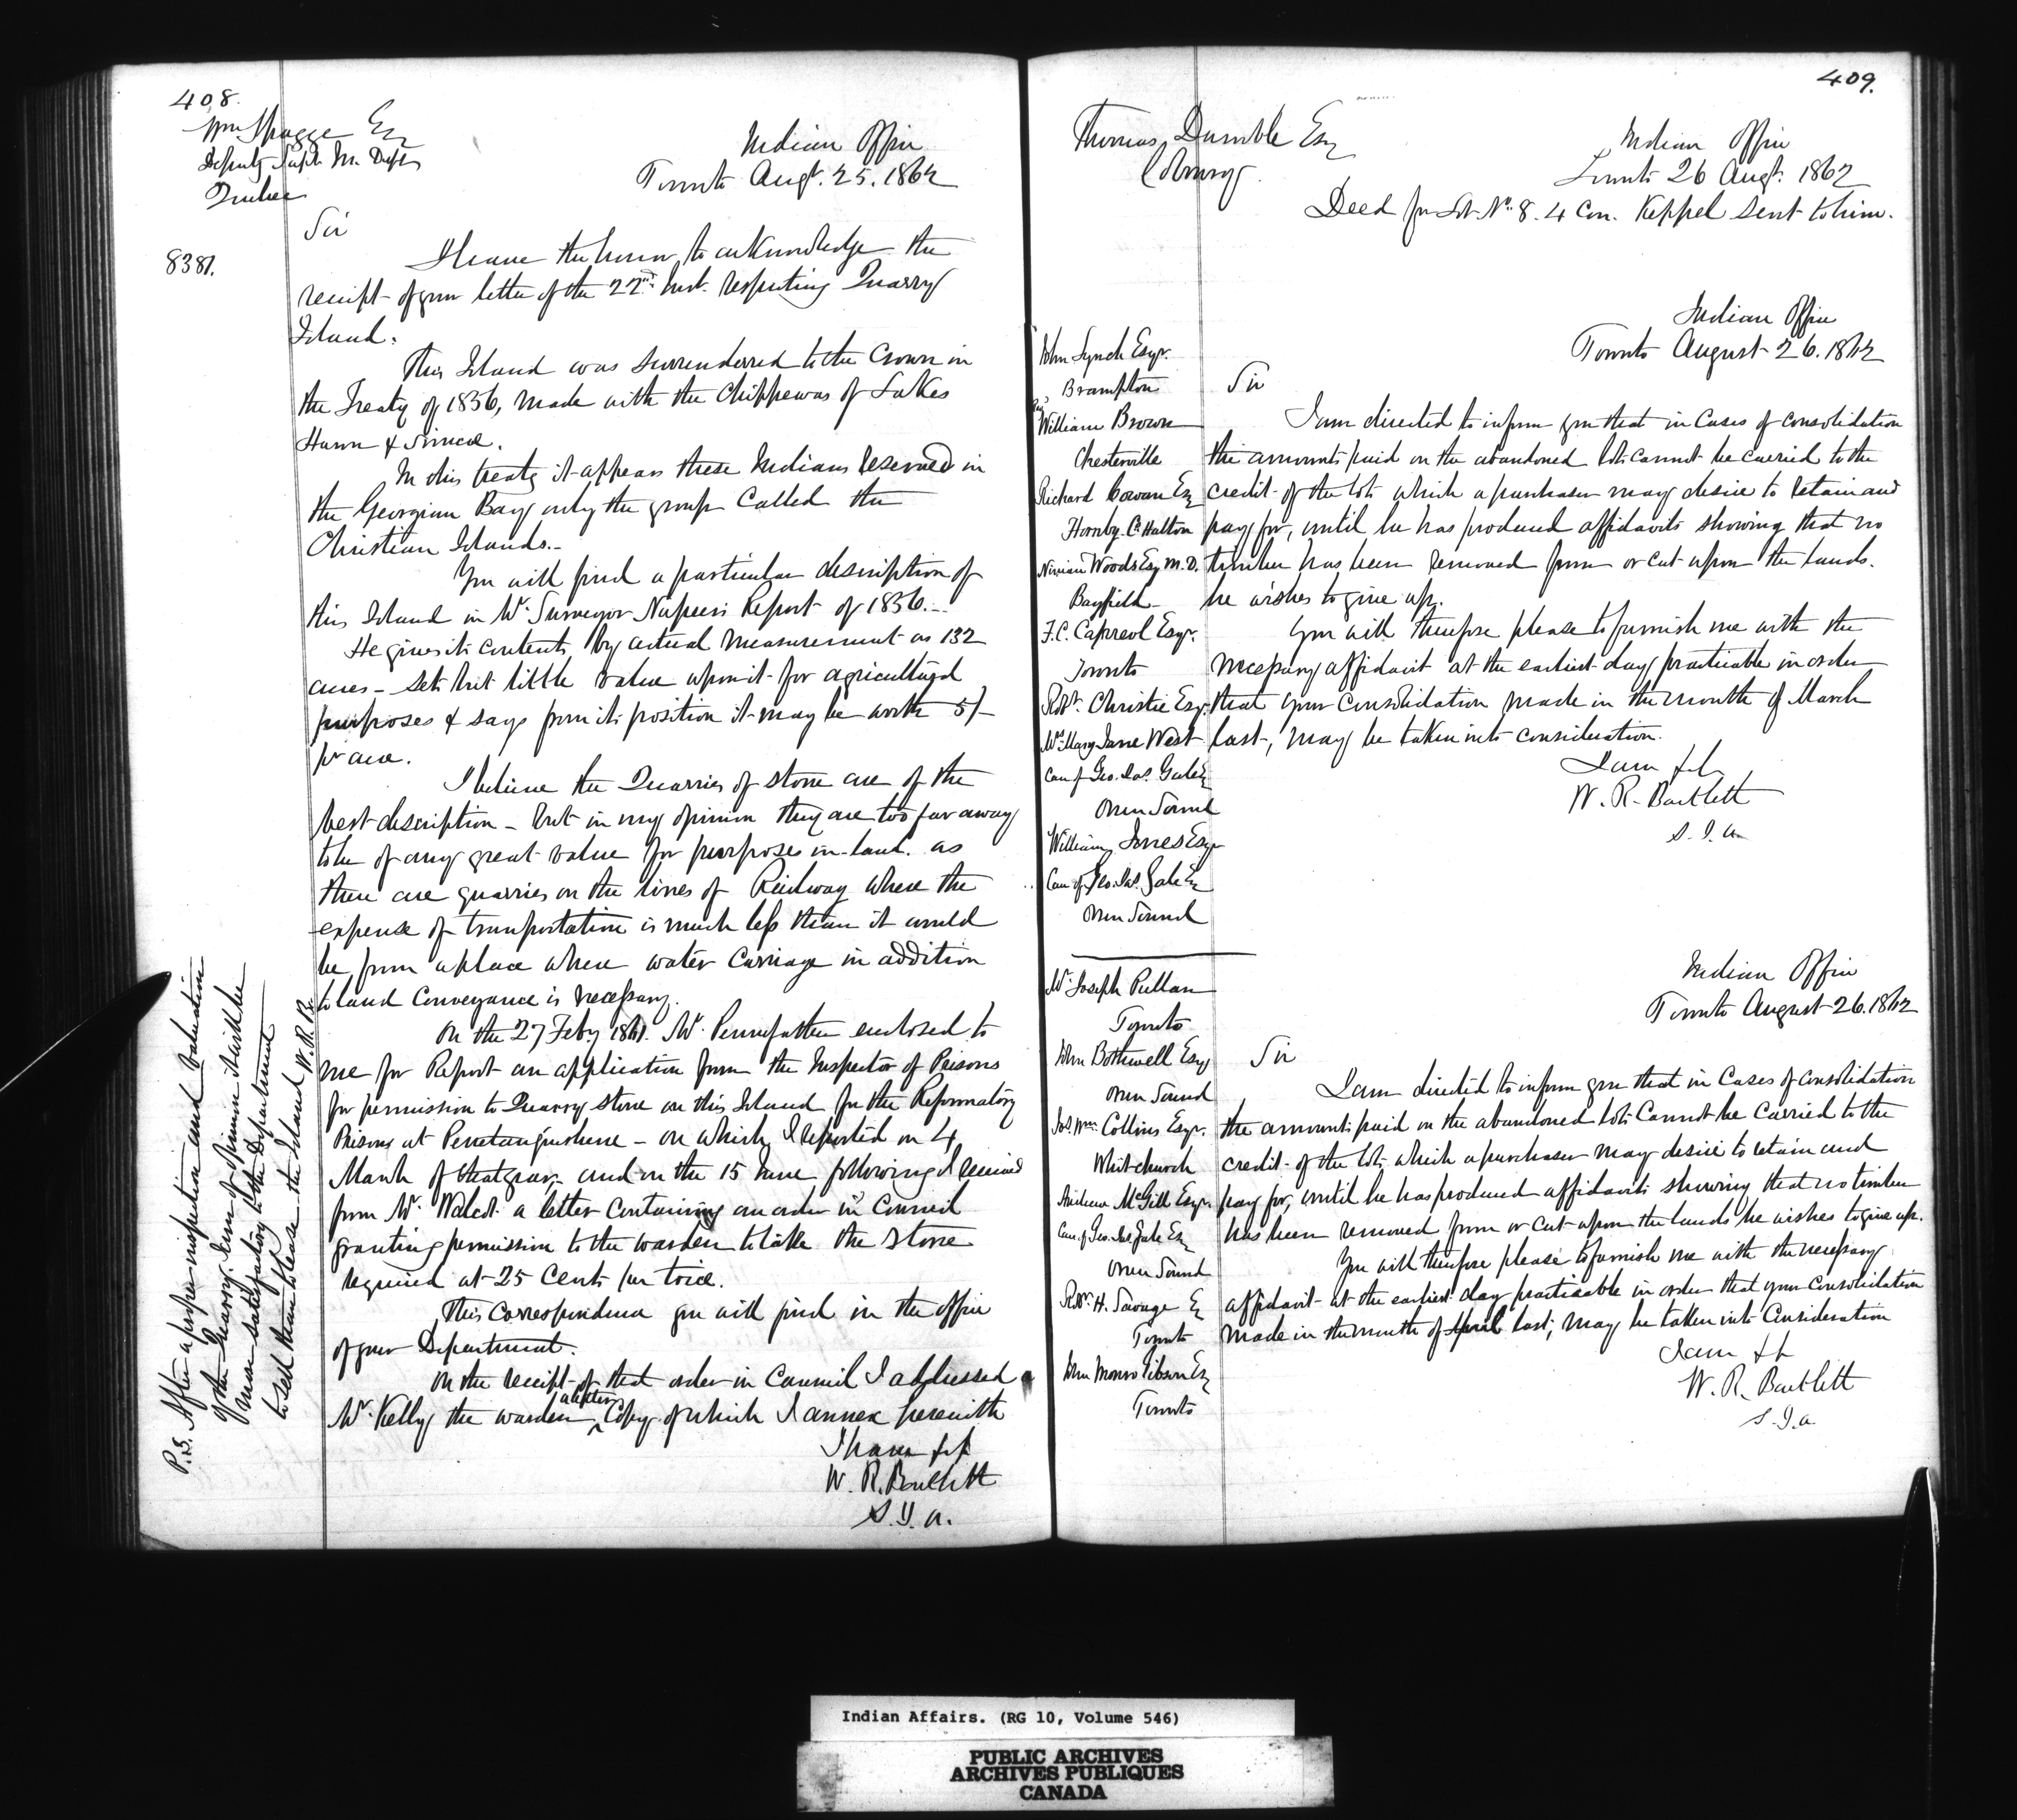 408.
Wm Spragge Esq
Deputy Supt In. Dept
Quebec
Indian Office
Toronto Augt. 25. 1862
Sir
8381.
I have the honor to acknowledge the
receipt of your letter of the 22nd Inst. respecting Quarry
Island.
This Island was surrendered to the Crown in
the Treaty of 1836, made with the Chippewas of Lakes
Huron & Simcoe.
In this treaty it appears these Indians reserved in
the Georgian Bay only the group called the
Christian Islands.-
You will find a particular description of
this Island in Mr. Surveyor Napier's Report of 1836.-
He gives its contents by actual measurement as 132
acres - sets but little value upon it for agricultural
purposes & says from its position it may be worth 5/-
pr acre.
I believe the Quarries of stone are of the
best description - but in my opinion they are too far away
to be of any great value for purposes in-land. as
there are quarries on the lines of Railway where the
expense of transportation is much less than it would
be from a place where water carriage in addition
to land conveyance is necessary.
On the 27 Feby 1861. Mr. Pennefather enclosed to
me for Report an application from the Inspector of Prisons
for permission to Quarry stone on this Island for the Reformatory
Prisons at Penetanguishene - on which I reported on 4
March of that year, and on the 15 June following I received
from Mr. Walcot a letter containing an order in Council
granting permission to the warden to take the stone
required at 25 Cents per toise.
This correspondence you will find in the office
of your Department.
On the receipt of that order in Council I addressed a
Mr. Kelly the warden a letter Copy of which I annex herewith
I have &c
W. R. Bartlett
S. I. A.
P.S. After a proper inspection and valuation
of the Quarry. I am of opinion it will be
more satisfactory to the Department
to sell than to lease the Island W. R. B.
409.
Thomas Dumble Esq
Cobourg.
Indian Office
Toronto 26 Augt. 1862
Deed for Lot No. 8. 4 Con. Keppel sent to him.
Indian Office
Toronto August 26. 1862
John Lynch Esqr.
Brampton
William Brown
Chesterville
Richard Cowan Esq
Hornby. Co Halton
Ninian Woods Esq M.D.
Bayfield
F. C. Capreol Esqr.
Toronto
Robt. Christie Esqr.
Mrs Mary Jane West
Care of Geo. Jas. Gale Esq
Owen Sound
William Jones Esqr
Care of Geo. Jas. Gale Esq
Owen Sound
Sir
I am directed to inform you that in Cases of consolidation
the amounts paid on the abandoned lots cannot be carried to the
credit of the lots which a purchaser may desire to retain and
pay for, until he has produced affidavits showing that no
timber has been removed from or cut upon the lands.
he wishes to give up.
You will therefore please to furnish me with the
necessary affidavit at the earliest day practicable in order
that your consolidation made in the month of March
last, may be taken into consideration.
I am &c
W. R. Bartlett
S. I. A
Mr. Joseph Pullan
Toronto
John Bothwell Esq
Owen Sound
Jas. Wm. Collins Esqr.
Whitchurch
Andrew McGill Esqr.
Care of Geo. Jas. Gale Esq
Owen Sound
Robt. H. Savage Esq
Toronto
John Monro Gibson Esq
Toronto
Indian Office
Toronto August 26. 1862
Sir
I am directed to inform you that in Cases of consolidation
the amounts paid on the abandoned lots Cannot be carried to the
credit of the lots which a purchaser may desire to retain and
pay for, until he has produced affidavits showing that no timber
has been removed from or cut upon the lands he wishes to give up.
You will therefore please to furnish me with the necessary
affidavit at the earliest day practicable in order that your consolidation
made in the month of April last, may be taken into Consideration
I am &c
W. R. Bartlett
S. I. A.
Indian Affairs. (RG 10, Volume 546)
PUBLIC ARCHIVES
ARCHIVES PUBLIQUES
CANADA